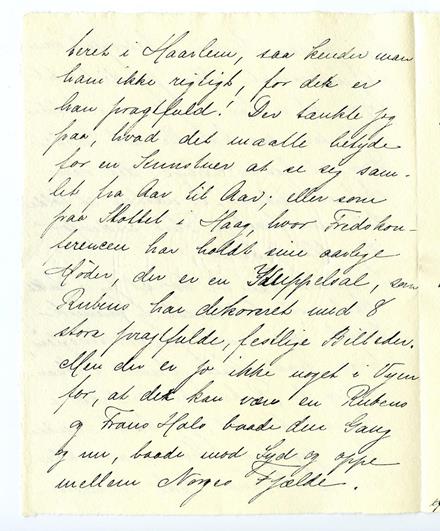 beret i Haarlem, saa kender man
ham ikke rigtigt, for dek er
han pragtfuld! Der tænkte jeg
paa, hvad det maatte betyde
for en Kunstner at se sig sam-
let fra Aar til Aar; eller som
paa Slottet i Haag, hvor Fredskon-
ferencen har holdt sine aarlige
Møder, der er en Kuppelsal, som
Rubens har dekoreret med 8
store pragtfulde, festlige Billeder.
Men der er jo ikke noget i Vejen
for, at dek kan være en Rubens
og Frans Hals baade den Gang
og nu, baade mod Syd og oppe
mellem Norges Fjælde.